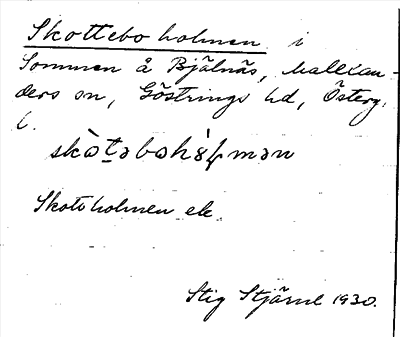 Skottebo holmen i
Sommen å Bjälnäs, Mallexan-
ders sn, Göstrings hd, Österg.
l.
skò̀təbəhólmən
Skotoholmen ek.
Stig Stjärne 1930.